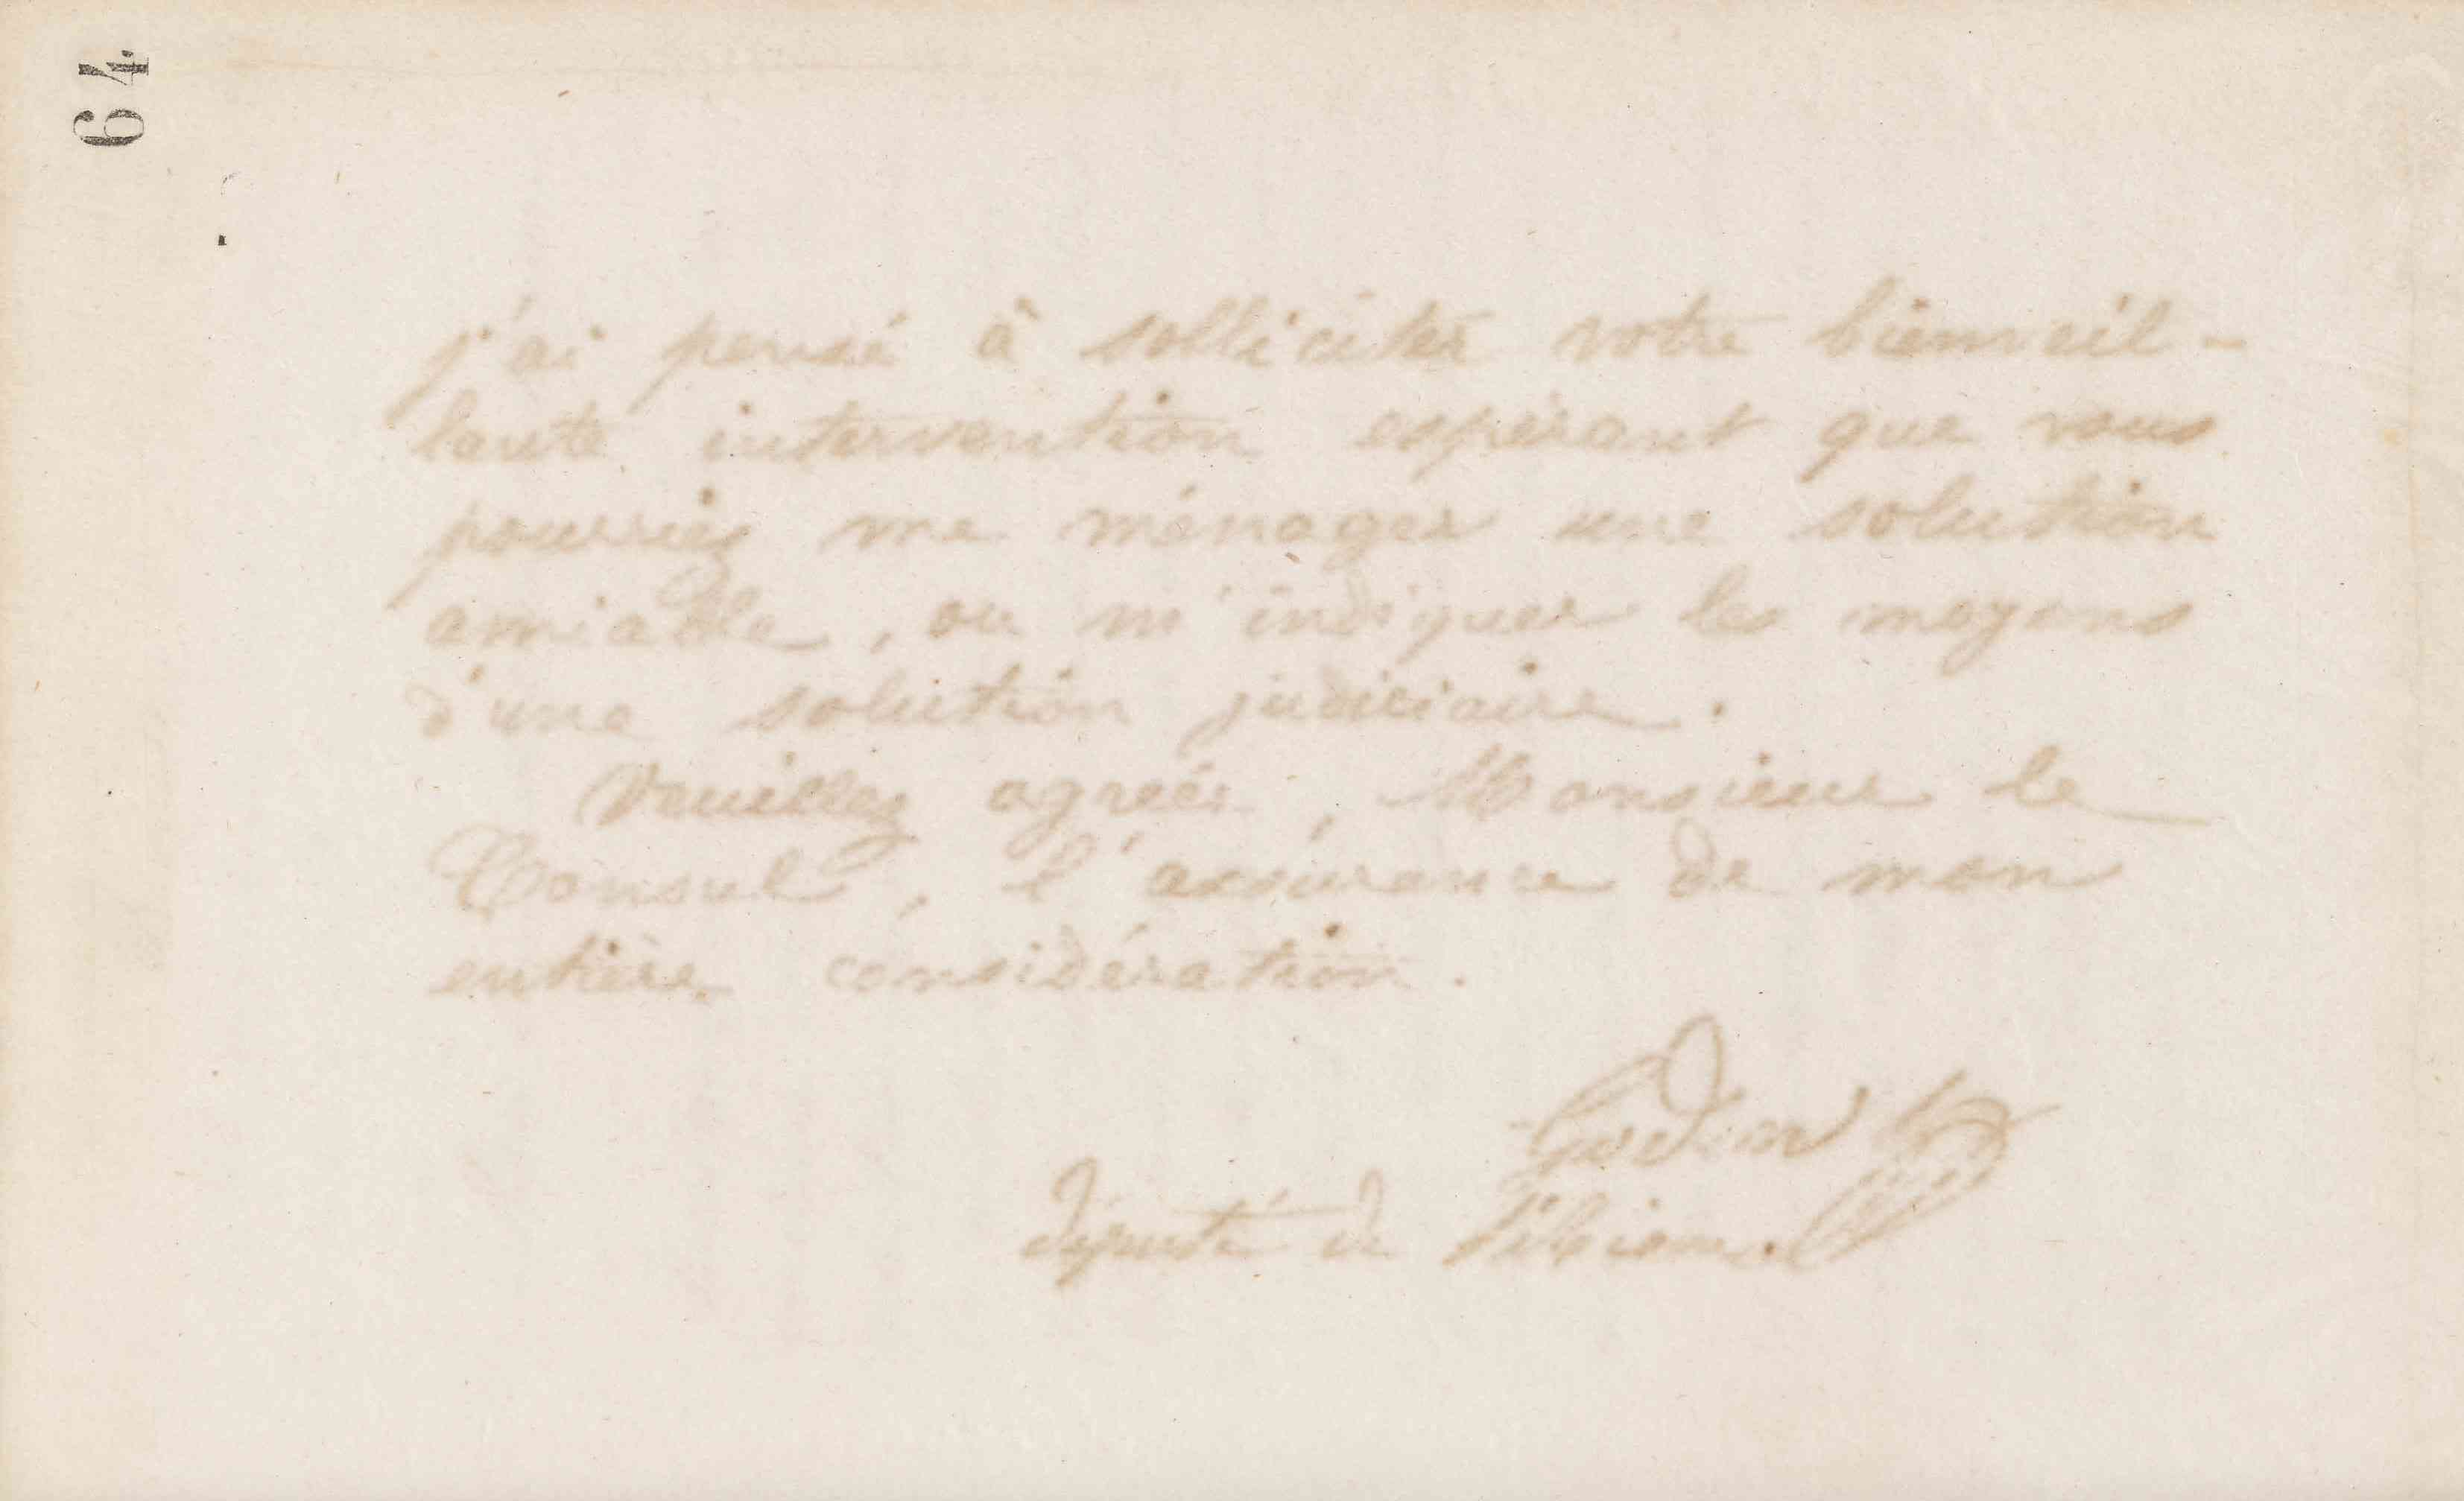 64
j'ai pensé à solliciter votre bienveil-
lante intervention espérant que vous
pourriez me ménager une solution
amiable, ou m'indiquer les moyens
d'une solution judiciaire.
Veuillez agréer, Monsieur le
Consul, l'assurance de mon
entière considération.
Godin
député de